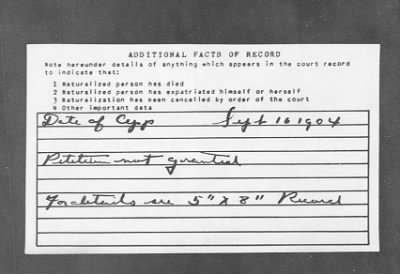 ADDITIONAL FACTS OF RECORD
Note hereunder details of anything which appears in the court record
to indicate that:
1 Naturalized person has died
2 Naturalized person has expatriated himself or herself
3 Naturalization has been cancelled by order of the court
4 Other important data
Date of Sept 16 1904
Petition not granted
For details see 5" X 8" Record